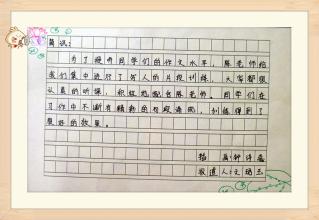 简讯：
为了提升同学们的作文水平，陈老师给
我们集中进行了写人的片段训练。大家都很
认真的听课，积极地配合陈老师。同学们在
习作中不断有精彩的段段涌现，训练得到了
很好的效果。
报道人：文